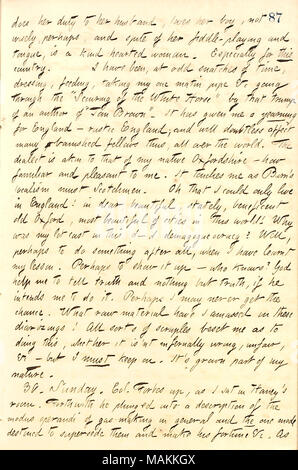 does her duty to her husband, loves her boy, not 87
wisely perhaps, and spite of her fiddle-playing and
tongue, is a kind hearted woman. Especially for this
country. I have been, at odd snatches of time,
dressing, feeding, taking my one matin pipe &c going
through the "Scouring of the White Horse" by that trump
of an author of "Tom Brown." It has given me a yearning
for England — rustic England, and will doubtless affect
many a banished fellow thus, all over the world. The
dialect is akin to that of my native Oxfordshire — how
familiar and pleasant to me. It touches me as Burns'
localism must Scotchmen. Oh that I could only live
in England! in dear, beautiful, stately, beneficent
old Oxford, most beautiful of cities in this world! Why
was my lot cast in this demagogocracy? Well,
perhaps to do something after all, when I have learnt
my lesson. Perhaps to show it up — who knows? God
help me to tell truth and nothing but truth, if he
intends me to do it. Perhaps I may never get the
chance. What raw material have I amassed in these
diaries! All sorts of scruples beset me as to
doing this, whether it is not infernally wrong, unfair,
&c — but I must keep on. It's grown part of my
nature.
30. Sunday. Ed. Forbes up, as I sat in Haney's
room. Forthwith he plunged into a description of the
modus operandi of gas-making in general and the one mode
destined to supersede them and make his fortune &c. As
alamy
Image ID: MAKKGX
www.alamy.com